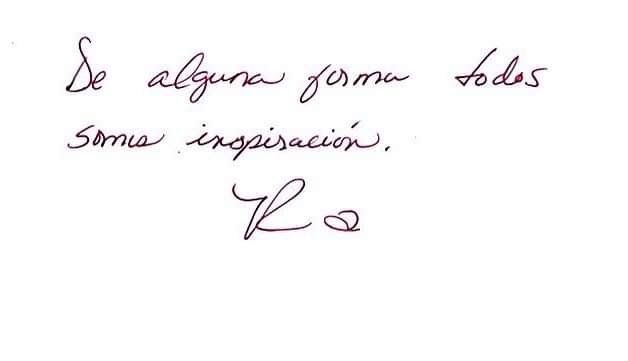 De alguna forma todos
somos inspiración.